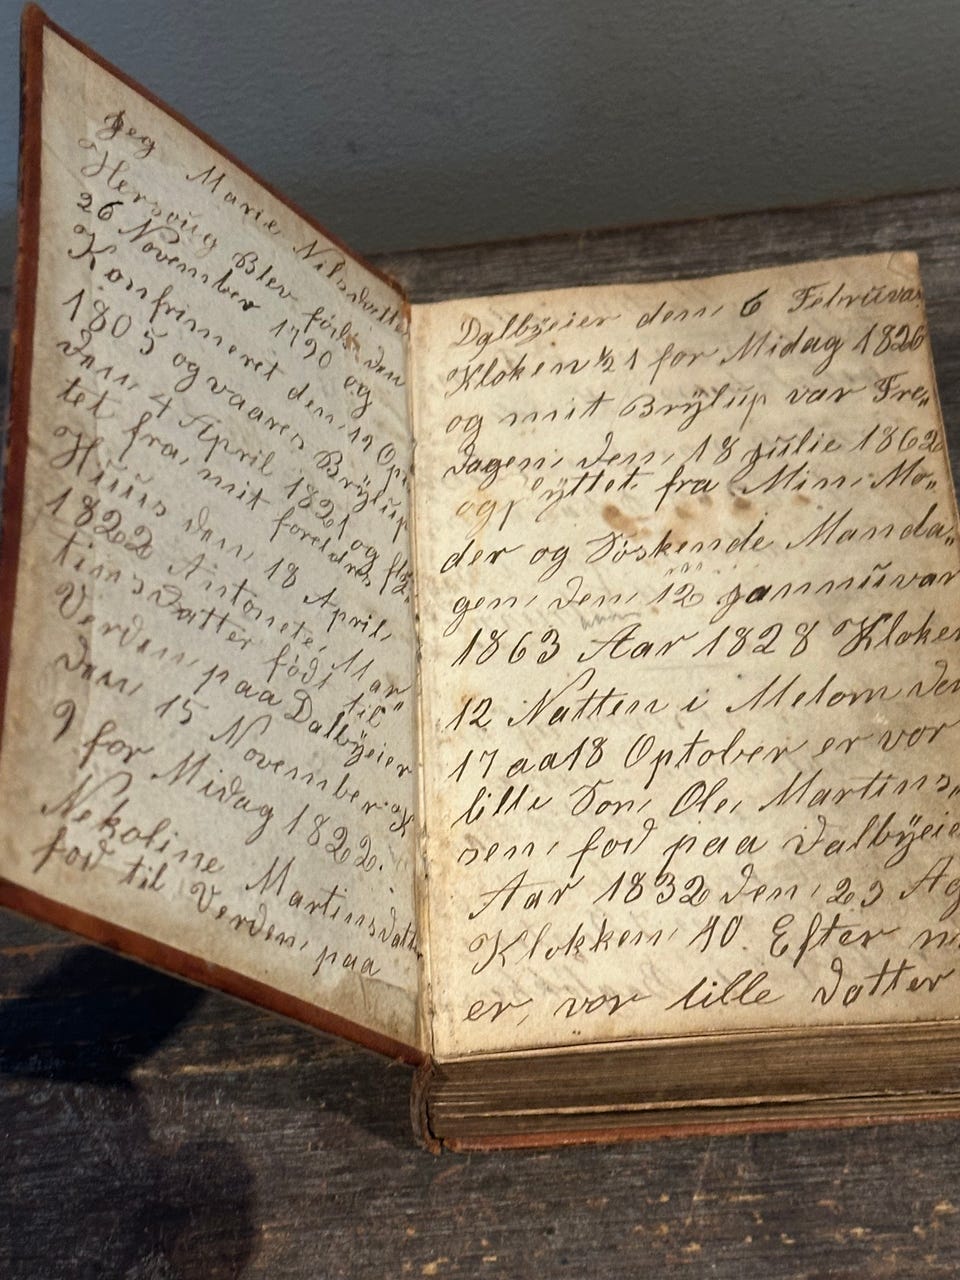 Jeg Marie Nilsdatter
Hersoug Blev född den
26 November 1790 og
Konfrimeret den 12 Op
1805 og vaares Brÿlup
den 4 April 1821 og flÿ„
tet fra mit foreldres
Huus den 18 April,
1822 Antonete, Mar„
tins Datter födt til
Verden, paa Dalbÿeier
den, 15 November K
9 for Midag 1822.
Nekoline Martinsdatt
fod til Verden, paa
Dalbÿeier den, 6 Februar
Kloken ½1 for Midag 1826
og mit Brÿlup var Fre„
dagen, den, 18 julie 1862
og flÿttet fra Min Mo„
der og Söskende Manda„
gen, den, 12 jannuvar
1863 Aar 1828 Kloken
12 Natten i Melom den
17 aa18 Optober er vor
lille Son, Ole, Martins„
sen, fod paa Dalbÿeie
Aar 1832 den, 23 Ag
Klokken, 10. Efter m
er, vor lille datter